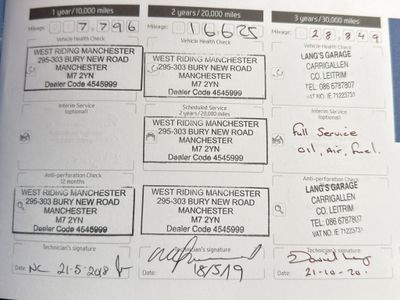 1 year/10,000 miles
Mileage: 7,796
Vehicle Health Check
WEST RIDING MANCHESTER
295-303 BURY NEW ROAD
MANCHESTER
M7 2YN
Dealer Code 4545999
Interim Service
(optional)
Anti-perforation Check
12 months
WEST RIDING MANCHESTER
295-303 BURY NEW ROAD
MANCHESTER
M7 2YN
Dealer Code 4545999
Technician's signature
Date: NC 21-5-2018
2 years/20,000 miles
Mileage: 16625
Vehicle Health Check
WEST RIDING MANCHESTER
295-303 BURY NEW ROAD
MANCHESTER
M7 2YN
Dealer Code 4545999
Scheduled Service
2 years/20,000 miles
WEST RIDING MANCHESTER
295-303 BURY NEW ROAD
MANCHESTER
M7 2YN
Dealer Code 4545999
WEST RIDING MANCHESTER
295-303 BURY NEW ROAD
MANCHESTER
M7 2YN
Dealer Code 4545999
Technician's signature
Date: 18/5/19
3 years/30,000 miles
Mileage: 28,849
Vehicle Health Check
LANG'S GARAGE
CARRIGALLEN
CO. LEITRIM
TEL: 086 6787807
VAT NO. IE 7122373
Interim Service
(optional)
Full Service
Oil, Air, Fuel.
Anti-perforation Check
LANG'S GARAGE
CARRIGALLEN
CO. LEITRIM
TEL: 086 6787807
VAT NO. IE 7122373
Technician's signature
Date: 21-10-20.